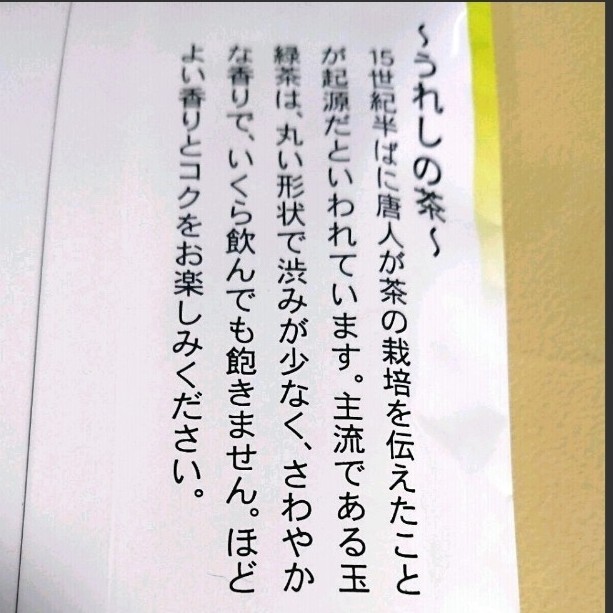 ～うれしの茶～
15世紀半ばに唐人が茶の栽培を伝えたこと
が起源だといわれています。主流である玉
緑茶は、丸い形状で渋みが少なく、さわやか
な香りで、いくら飲んでも飽きません。ほど
よい香りとコクをお楽しみください。